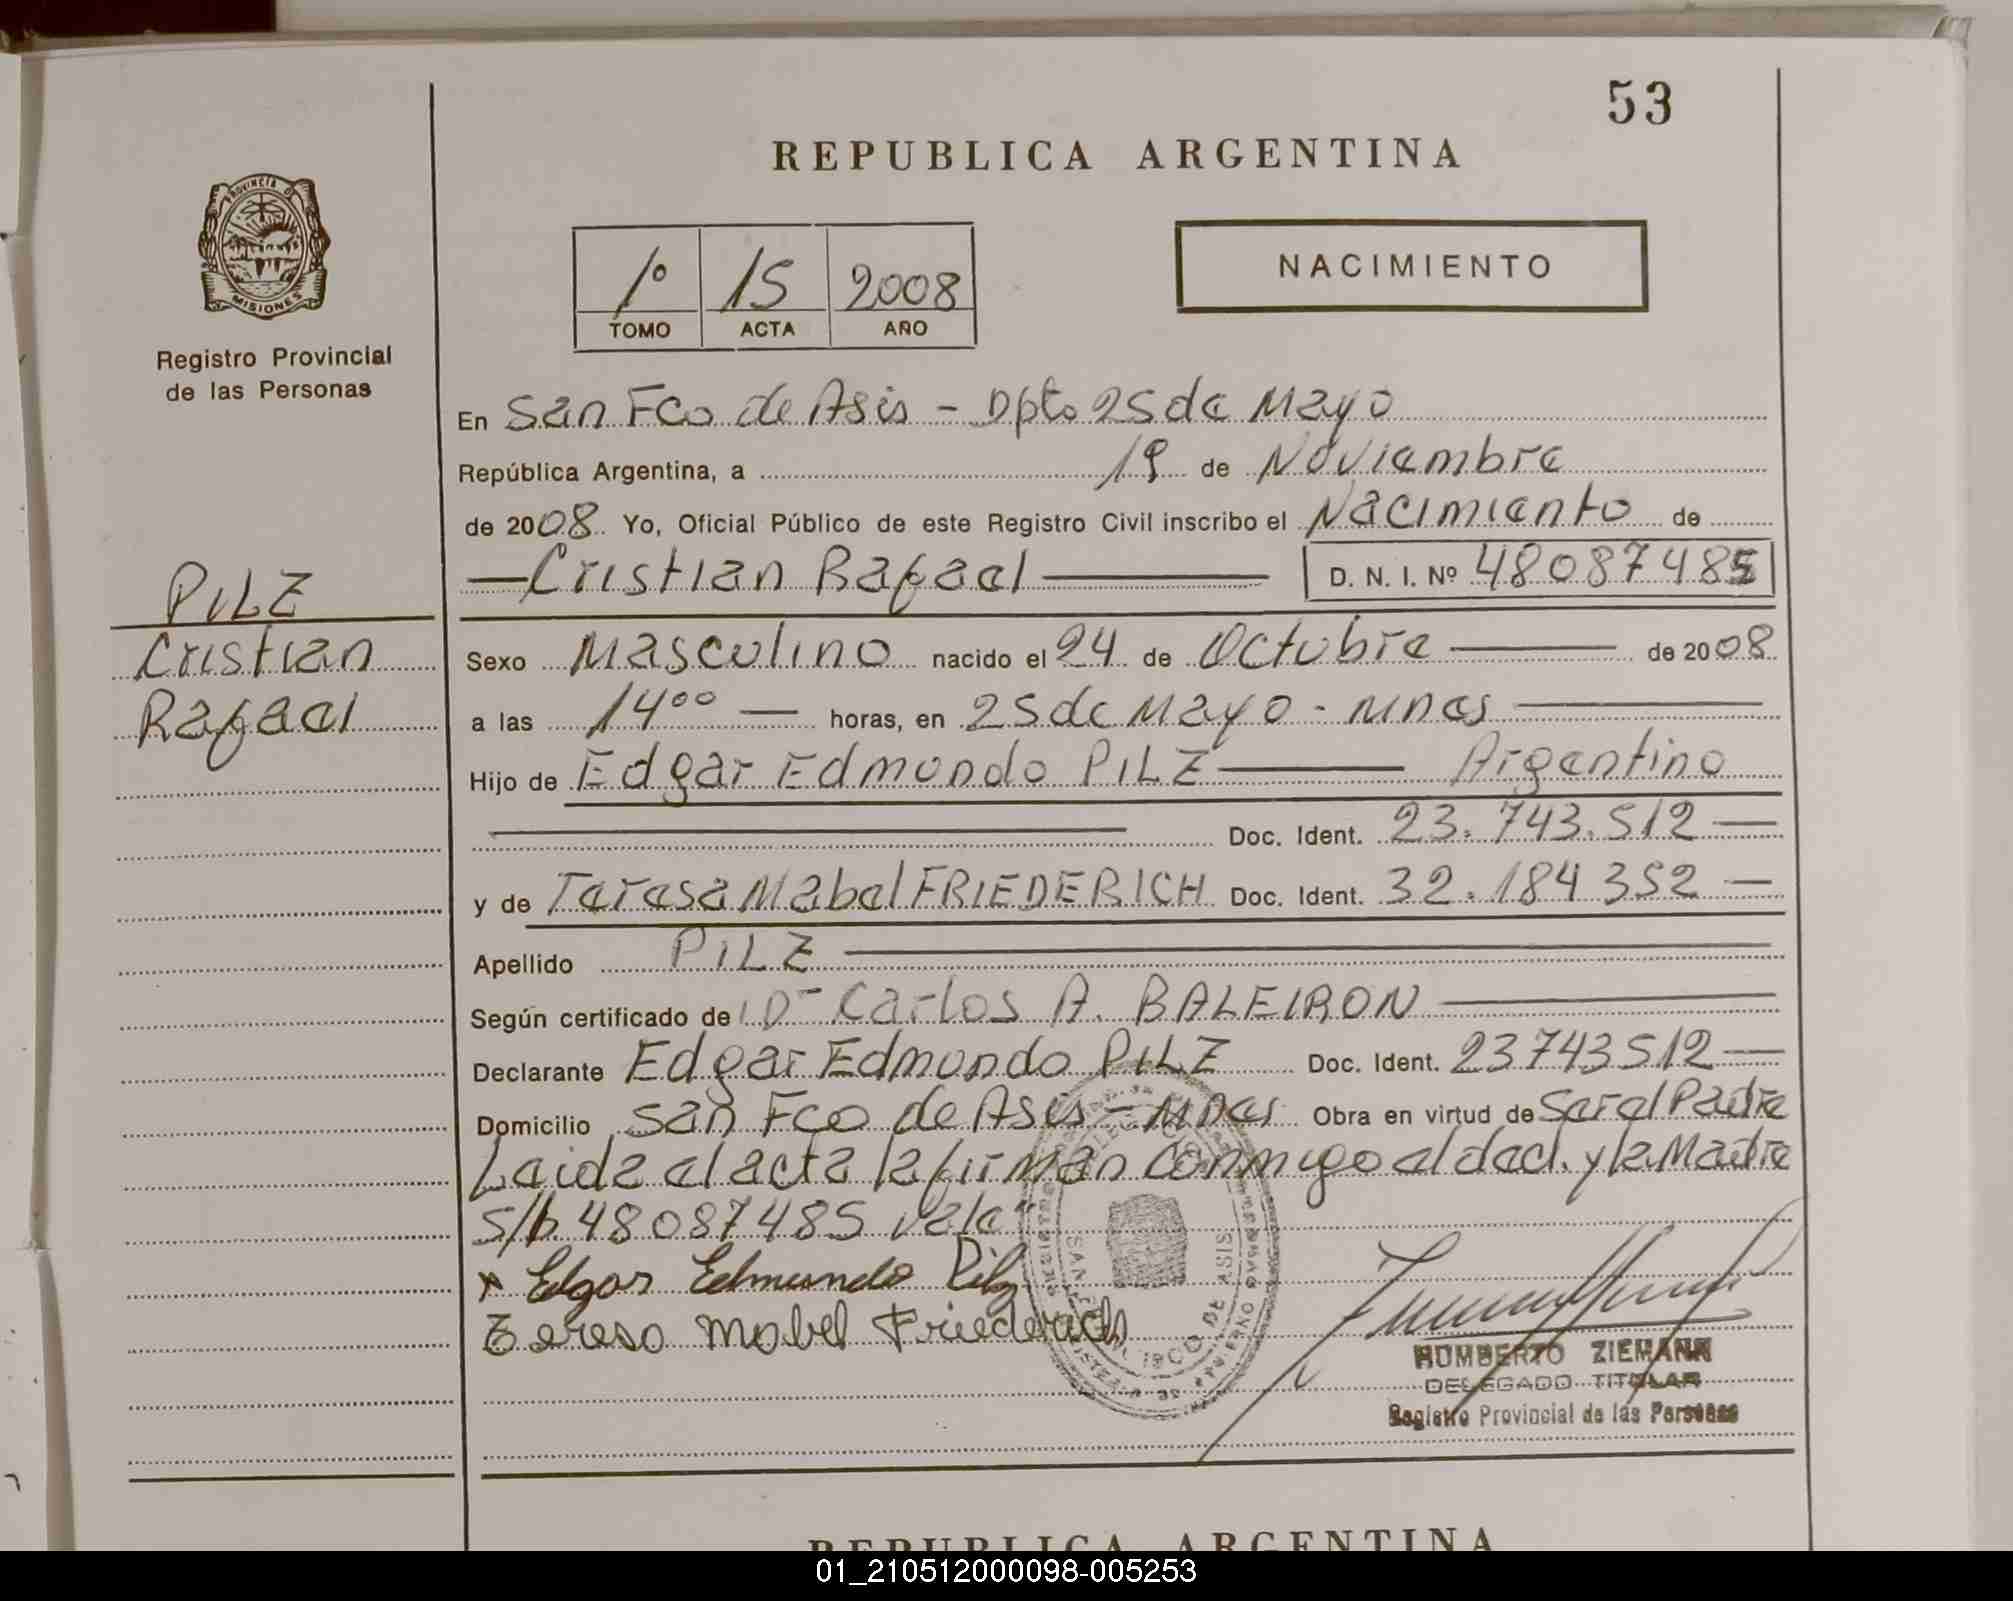 53
REPUBLICA ARGENTINA
PROVINCIA DE
MISIONES
Registro Provincial
de las Personas
1º 15 2008
TOMO ACTA AÑO
NACIMIENTO
En San Fco de Asis - Dpto 25 de Mayo
República Argentina, a 19 de Noviembre
de 2008 Yo, Oficial Público de este Registro Civil inscribo el Nacimiento de
— Cristian Rafael — D. N. I. Nº 48087485
PILZ
Cristian
Rafael
Sexo Masculino nacido el 24 de Octubre — de 2008
a las 14⁰⁰ — horas, en 25 de Mayo - Mnes —
Hijo de Edgar Edmundo PILZ — Argentino
— Doc. Ident. 23.743.512 —
y de Teresa Mabel FRIEDERICH Doc. Ident. 32.184 352 —
Apellido PILZ —
Según certificado de Dr Carlos A. BALEIRON —
Declarante Edgar Edmundo PILZ Doc. Ident. 23743512 —
Domicilio San Fco de Asis - Mnes Obra en virtud de Ser el Padre
Leida el acta la firman conmigo el decl. y la Madre
S/b. 48087485 vale"
x Edgar Edmundo Pilz
Tereso Mabel Friederich
SAN FRANCISCO DE ASIS
HUMBERTO ZIEMANN
DELEGADO TITULAR
Registro Provincial de las Personas
REPUBLICA ARGENTINA
01_210512000098-005253